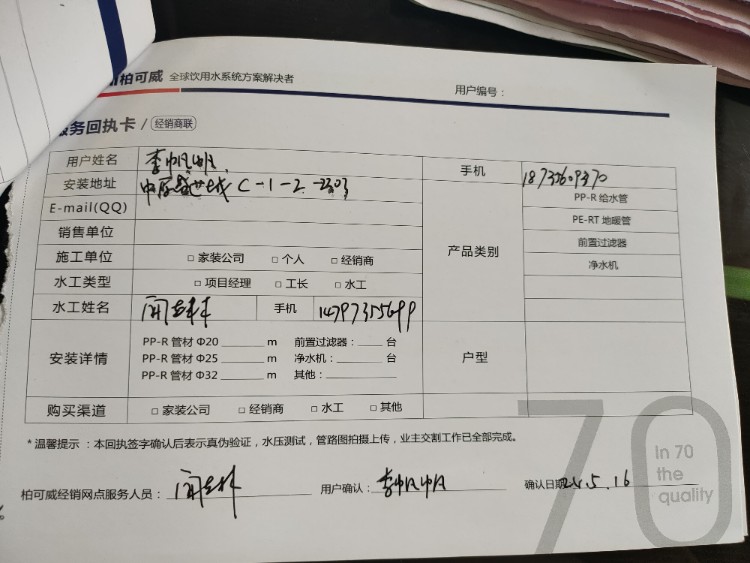 柏可威 全球饮用水系统方案解决者
用户编号：
服务回执卡 / 经销商联
用户姓名 李帆帆 手机
安装地址 C-1-2-2303
E-mail(QQ)
销售单位
施工单位 □ 家装公司 □ 个人 □ 经销商
水工类型 □ 项目经理 □ 工长 □ 水工
水工姓名 手机 14797355699
产品类别
PP-R 给水管
PE-RT 地暖管
前置过滤器
净水机
安装详情
PP-R 管材 Φ20 m 前置过滤器： 台
PP-R 管材 Φ25 m 净水机： 台
PP-R 管材 Φ32 m 其他：
户型
购买渠道 □ 家装公司 □ 经销商 □ 水工 □ 其他
* 温馨提示 ：本回执签字确认后表示真伪验证，水压测试，管路图拍摄上传，业主交割工作已全部完成。
70
In 70
the
quality
柏可威经销网点服务人员： 用户确认： 李帆帆 确认日期 24.5.16